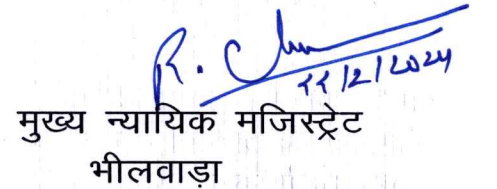 22/2/2024
मुख्य न्यायिक मजिस्ट्रेट
भीलवाड़ा